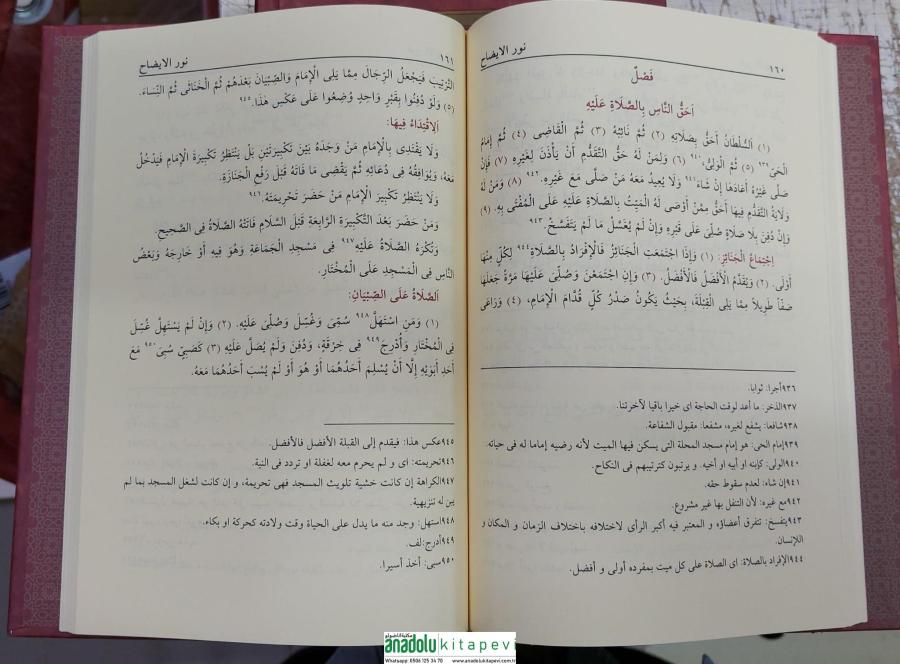 نور الايضاح ١٦٠
فَصْلٌ
اَحَقُّ النَّاسِ بِالصَّلَاةِ عَلَيْهِ
(١) اَلسُّلْطَانُ اَحَقُّ بِصَلَاتِهِ (٢) ثُمَّ نَائِبُهُ (٣) ثُمَّ الْقَاضِى (٤) ثُمَّ اِمَامُ
الْحَىِّ٩٣٩ (٥) ثُمَّ الْوَلِىُّ٩٤٠ (٦) وَلِمَنْ لَهُ حَقُّ التَّقَدُّمِ أَنْ يَأْذَنَ لِغَيْرِهِ (٧) فَإِنْ
صَلَّى غَيْرُهُ أَعَادَهَا إِنْ شَاءَ٩٤١ وَلَا يُعِيدُ مَعَهُ مَنْ صَلَّى مَعَ غَيْرِهِ.٩٤٢ (٨) وَمَنْ لَهُ
وَلَايَةُ التَّقَدُّمِ فِيهَا اَحَقُّ مِمَّنْ أَوْصَى لَهُ الْمَيِّتُ بِالصَّلَاةِ عَلَيْهِ عَلَى الْمُفْتَى بِهِ. (٩)
وَإِنْ دُفِنَ بِلَا صَلَاةٍ صُلِّىَ عَلَى قَبْرِهِ وَإِنْ لَمْ يُغَسَّلْ مَا لَمْ يَتَفَسَّخْ.٩٤٣
اِجْتِمَاعُ الْجَنَائِزِ: (١) وَإِذَا اجْتَمَعَتِ الْجَنَائِزُ فَالْاِفْرَادُ بِالصَّلَاةِ٩٤٤ لِكُلٍّ مِنْهَا
أَوْلَى. (٢) وَيُقَدَّمُ الْأَفْضَلُ فَالْأَفْضَلُ. (٣) وَإِنِ اجْتَمَعْنَ وَصُلِّىَ عَلَيْهَا مَرَّةً جَعَلَهَا
صَفًّا طَوِيلًا مِمَّا يَلِى الْقِبْلَةَ، بِحَيْثُ يَكُونُ صَدْرُ كُلٍّ قُدَّامَ الْإِمَامِ، (٤) وَرَاعَى
٩٣٦أجرا: ثوابا.
٩٣٧الذخر: ما أعد لوقت الحاجة اى خيرا باقيا لآخرتنا.
٩٣٨شافعا: يشفع لغيره، مشفعا: مقبول الشفاعة.
٩٣٩إمام الحى: هو إمام مسجد المحلة التى يسكن فيها الميت لأنه رضيه إماما له فى حياته.
٩٤٠الولى: كإبنه او أبيه او أخيه. و يرتبون كترتيبهم فى النكاح.
٩٤١إن شاء: لعدم سقوط حقه.
٩٤٢مع غيره: لأن التنفل بها غير مشروع.
٩٤٣يتفسخ: تتفرق أعضاؤه و المعتبر فيه أكبر الرأى لاختلافه باختلاف الزمان و المكان و
الإنسان.
٩٤٤الإفراد بالصلاة: اى الصلاة على كل ميت بمفرده أولى و أفضل.
نور الايضاح ١٦١
التَّرْتِيبَ فَيَجْعَلُ الرِّجَالَ مِمَّا يَلِى الْإِمَامَ وَالصِّبْيَانَ بَعْدَهُمْ ثُمَّ الْخَنَاثَى ثُمَّ النِّسَاءَ.
(٥) وَلَوْ دُفِنُوا بِقَبْرٍ وَاحِدٍ وُضِعُوا عَلَى عَكْسِ هٰذَا.٩٤٥
اَلِاقْتِدَاءُ فِيهَا:
وَلَا يَقْتَدِى بِالْإِمَامِ مَنْ وَجَدَهُ بَيْنَ تَكْبِيرَتَيْنِ بَلْ يَنْتَظِرُ تَكْبِيرَةَ الْإِمَامِ فَيَدْخُلُ
مَعَهُ، وَيُوَافِقُهُ فِى دُعَائِهِ ثُمَّ يَقْضِى مَا فَاتَهُ قَبْلَ رَفْعِ الْجَنَازَةِ.
وَلَا يَنْتَظِرُ تَكْبِيرَ الْإِمَامِ مَنْ حَضَرَ تَحْرِيمَتَهُ.٩٤٦
وَمَنْ حَضَرَ بَعْدَ التَّكْبِيرَةِ الرَّابِعَةِ قَبْلَ السَّلَامِ فَاتَتْهُ الصَّلَاةُ فِى الصَّحِيحِ.
وَتُكْرَهُ الصَّلَاةُ عَلَيْهِ٩٤٧ فِى مَسْجِدِ الْجَمَاعَةِ وَهُوَ فِيهِ أَوْ خَارِجَهُ وَبَعْضُ
النَّاسِ فِى الْمَسْجِدِ عَلَى الْمُخْتَارِ.
اَلصَّلَاةُ عَلَى الصِّبْيَانِ:
(١) وَمَنِ اسْتَهَلَّ٩٤٨ سُمِّىَ وَغُسِّلَ وَصُلِّىَ عَلَيْهِ. (٢) وَإِنْ لَمْ يَسْتَهِلَّ غُسِّلَ
فِى الْمُخْتَارِ وَأُدْرِجَ٩٤٩ فِى خِرْقَةٍ، وَدُفِنَ وَلَمْ يُصَلَّ عَلَيْهِ (٣) كَصَبِىٍّ سُبِىَ٩٥٠ مَعَ
أَحَدِ أَبَوَيْهِ إِلَّا أَنْ يُسْلِمَ أَحَدُهُمَا أَوْ هُوَ أَوْ لَمْ يُسْبَ أَحَدُهُمَا مَعَهُ.
٩٤٥عكس هذا: فيقدم إلى القبلة الأفضل فالأفضل.
٩٤٦تحريمته: اى و لم يحرم معه لغفلة او تردد فى النية.
٩٤٧الكراهة إن كانت خشية تلويث المسجد فهى تحريمة، و إن كانت لشغل المسجد بما لم
يبن له تنزيهية.
٩٤٨استهل: وجد منه ما يدل على الحياة وقت ولادته كحركة او بكاء.
٩٤٩أدرج:لف.
٩٥٠سبى: أخذ أسيرا.
anadolukitapevi
Whatsapp: 0506 125 34 70 www.anadolukitapevi.com.tr